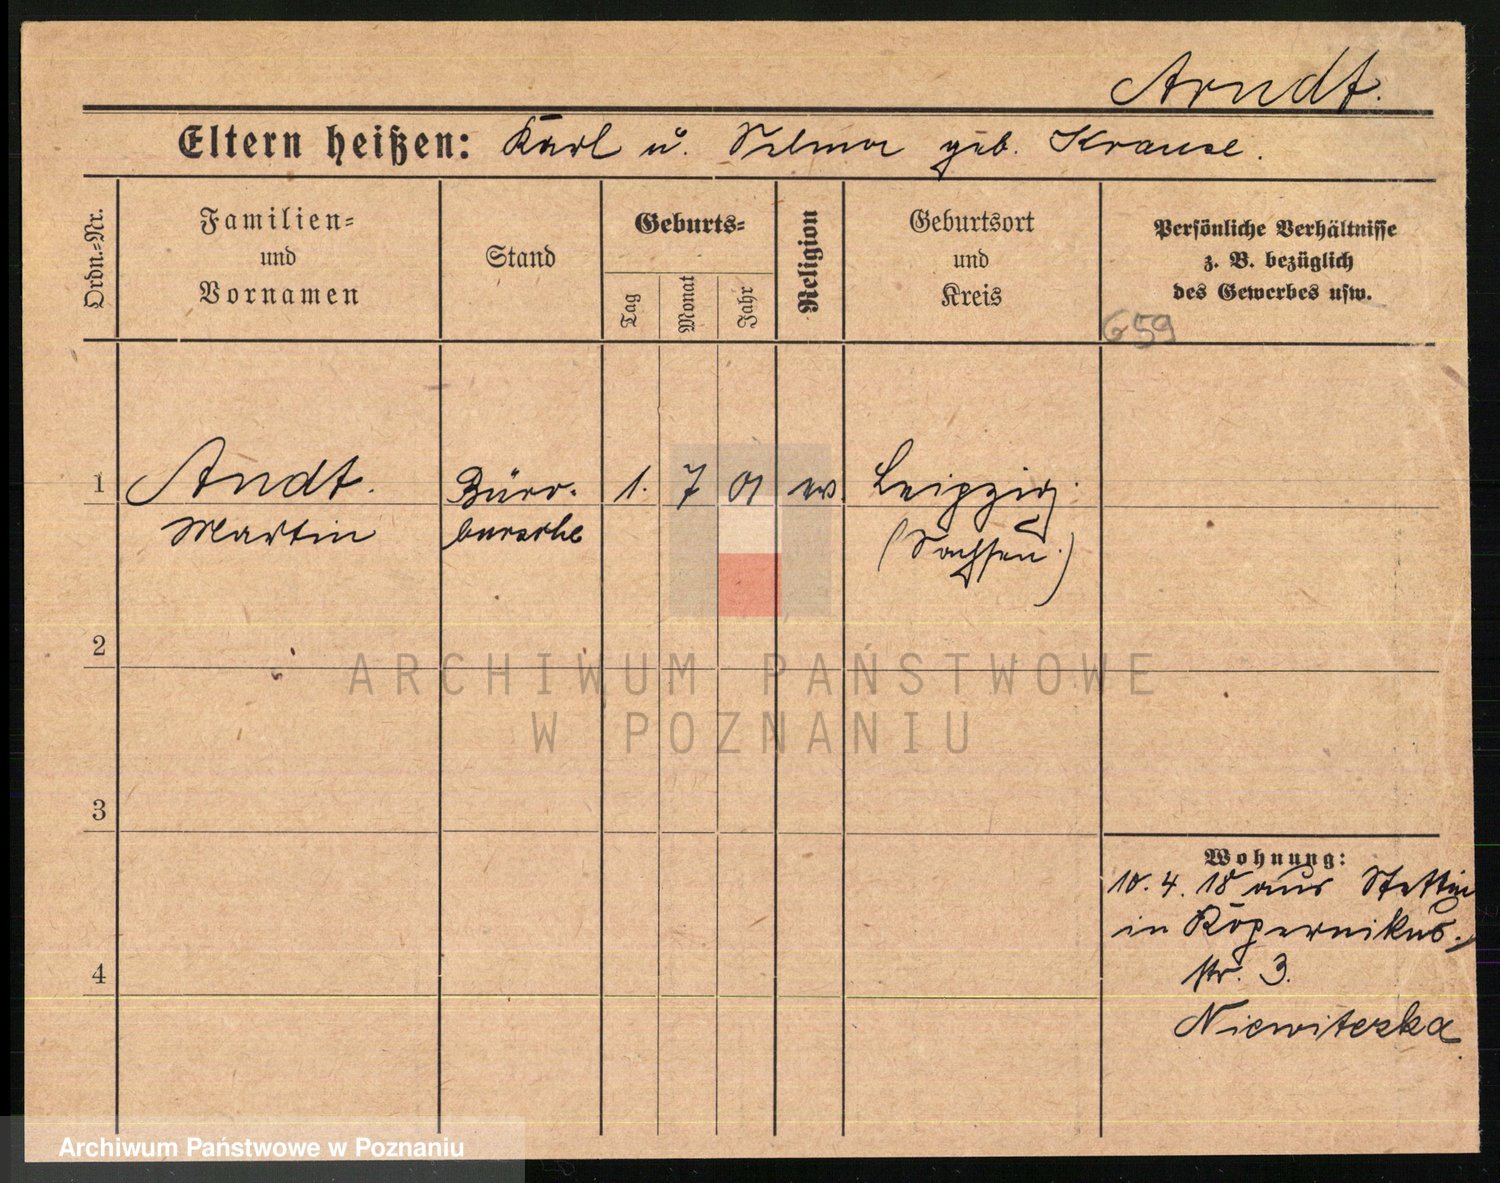 Arndt.
Eltern heißen: Karl u. Selma geb. Krause.
Ordn.=Nr.
Familien=
und
Vornamen
Stand
Geburts=
Tag
Monat
Jahr
Religion
Geburtsort
und
Kreis
Persönliche Verhältnisse
z. B. bezüglich
des Gewerbes usw.
G59
1
Arndt.
Martin
Büro-
bursche
1.
7
01
ev.
Leipzig.
(Sachsen.)
2
3
4
Wohnung:
10. 4. 18 aus Stettin
in Kopernikus-
str. 3.
Niewitezka
ARCHIWUM PAŃSTWOWE
W POZNANIU
Archiwum Państwowe w Poznaniu